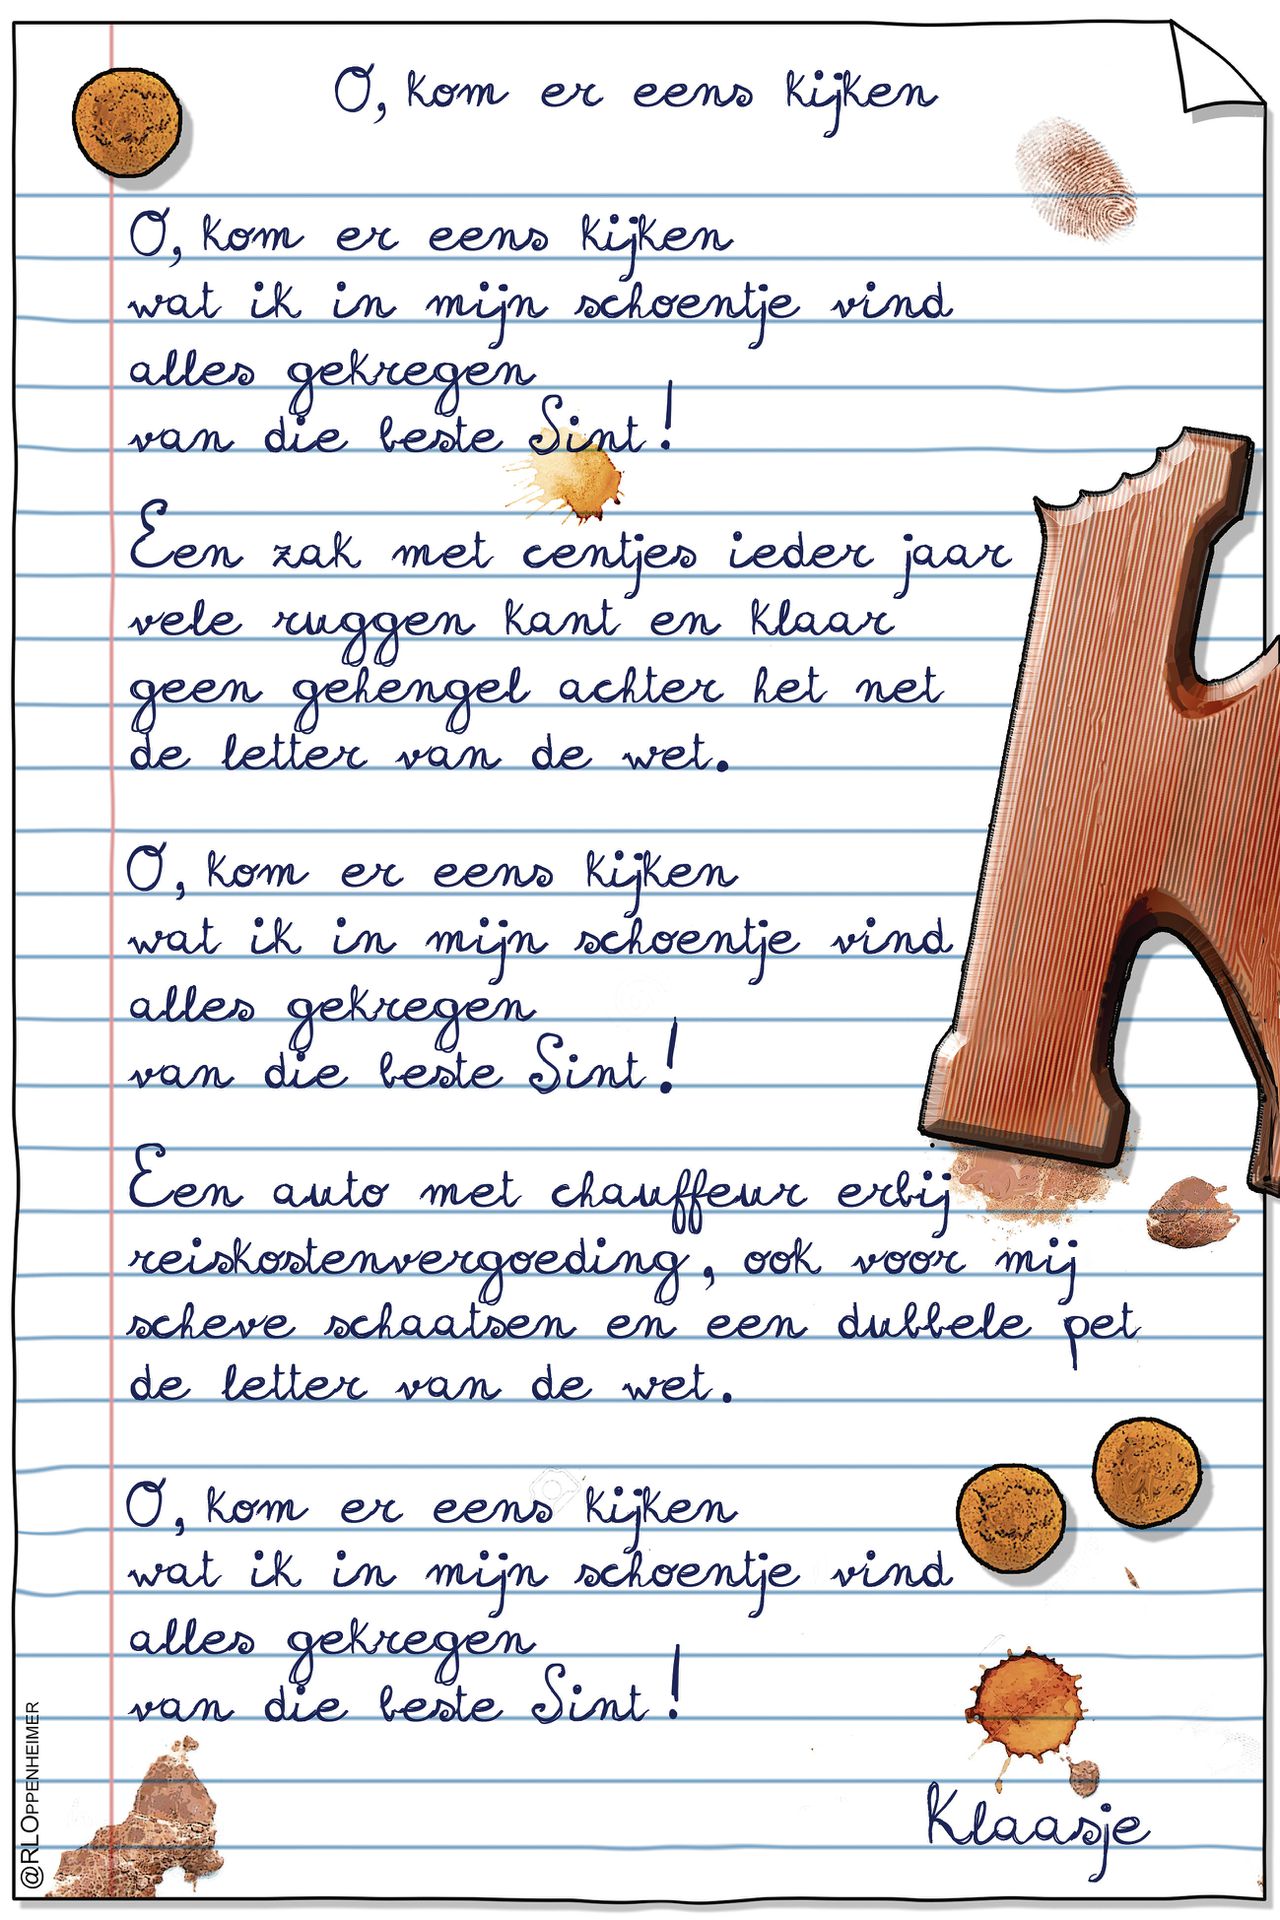 O, kom er eens kijken
O, kom er eens kijken
wat ik in mijn schoentje vind
alles gekregen
van die beste Sint!
Een zak met centjes ieder jaar
vele ruggen kant en klaar
geen gehengel achter het net
de letter van de wet.
O, kom er eens kijken
wat ik in mijn schoentje vind
alles gekregen
van die beste Sint!
Een auto met chauffeur erbij
reiskostenvergoeding, ook voor mij
scheve schaatsen en een dubbele pet
de letter van de wet.
O, kom er eens kijken
wat ik in mijn schoentje vind
alles gekregen
van die beste Sint!
Klaasje
@RLOPPENHEIMER